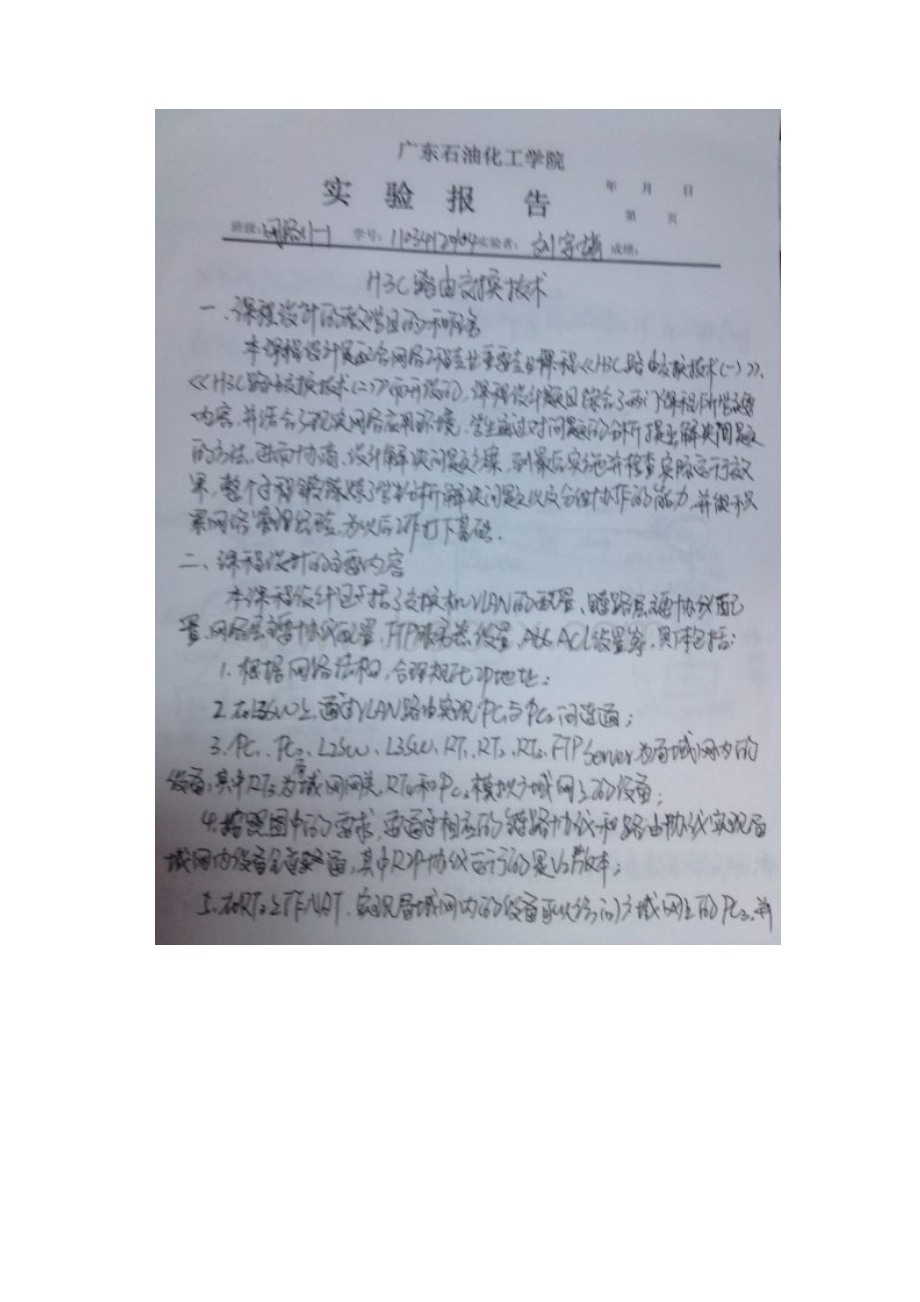 广东石油化工学院
实 验 报 告 年 月 日
第 页
班级:网络11-1 学号:11034129 实验者:刘宇 成绩:
H3C路由交换技术
一、课程设计的教学目的和任务
本课程设计是配合网络工程专业重要专业课程《H3C路由交换技术(一)》、
《H3C路由交换技术(二)》而开设的,课程设计题目综合了两门课程所学主要
内容,并结合了现实网络应用环境,学生通过对问题的分析,提出解决问题
的方法,进而协商、设计解决问题方案,到最后实施并检查实际运行效
果,整个过程锻炼了学生分析解决问题以及合作协作的能力,并能积
累网络管理经验,为以后工作打下基础.
二、课程设计的主要内容
本课程设计包括了交换机VLAN的配置、链路层主要协议配
置、网络层主要协议配置、FTP服务器设置、ACL设置等,具体包括:
1.根据网络结构,合理规化IP地址;
2.在L3SW上,通过VLAN路由实现PC1与PC2间连通;
3.PC1、PC2、L2SW、L3SW、RT1、RT2、RT3、FTP Server为局域网内的
设备,其中RT3为局域网网关,RT4和PC3模拟广域网上的设备;
4.按照图中的要求,要通过相应的链路协议和路由协议实现局
域网内设备全部连通,其中RIP协议运行的是V2版本;
5.在RT3上做NAT,实现局域网内的设备可以访问广域网上的PC3,并